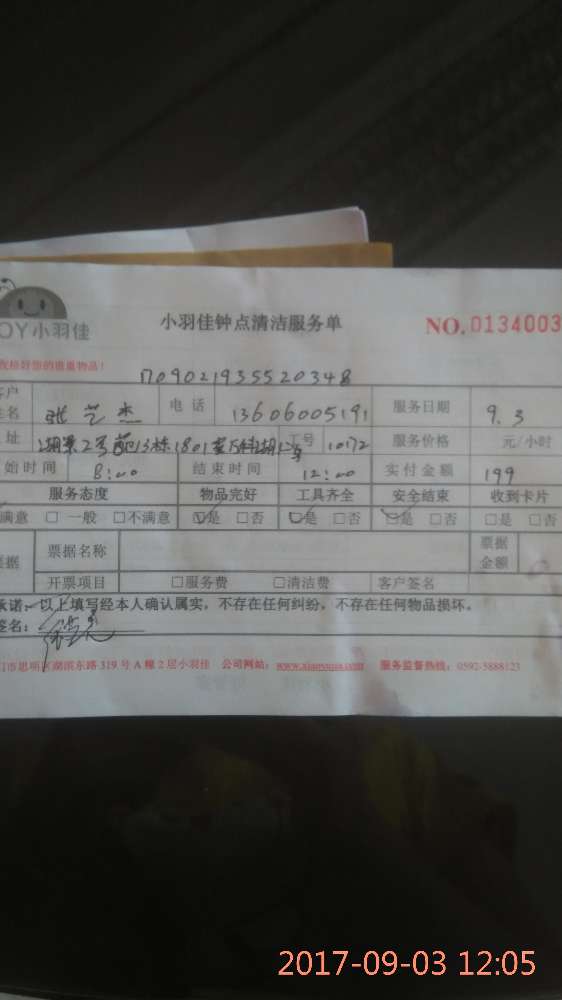 OY小羽佳 小羽佳钟点清洁服务单 NO.0134003
1709021935520348
客户姓名 张艺杰 电话 13606005191 服务日期 9.3
址 湖景2号 13栋1801室 工号 10172 服务价格 元/小时
始时间 8:00 结束时间 12:00 实付金额 199
服务态度 物品完好 工具齐全 安全结束 收到卡片
满意 □一般 □不满意 ☑是 □否 ☑是 □否 ☑是 □否 □是 □否
票据 票据名称 票据金额
开票项目 □服务费 □清洁费 客户签名
承诺:以上填写经本人确认属实,不存在任何纠纷,不存在任何物品损坏。
签名:
门市思明区湖滨东路319号A幢2层小羽佳 公司网站: 服务监督热线:0592-5888123
2017-09-03 12:05